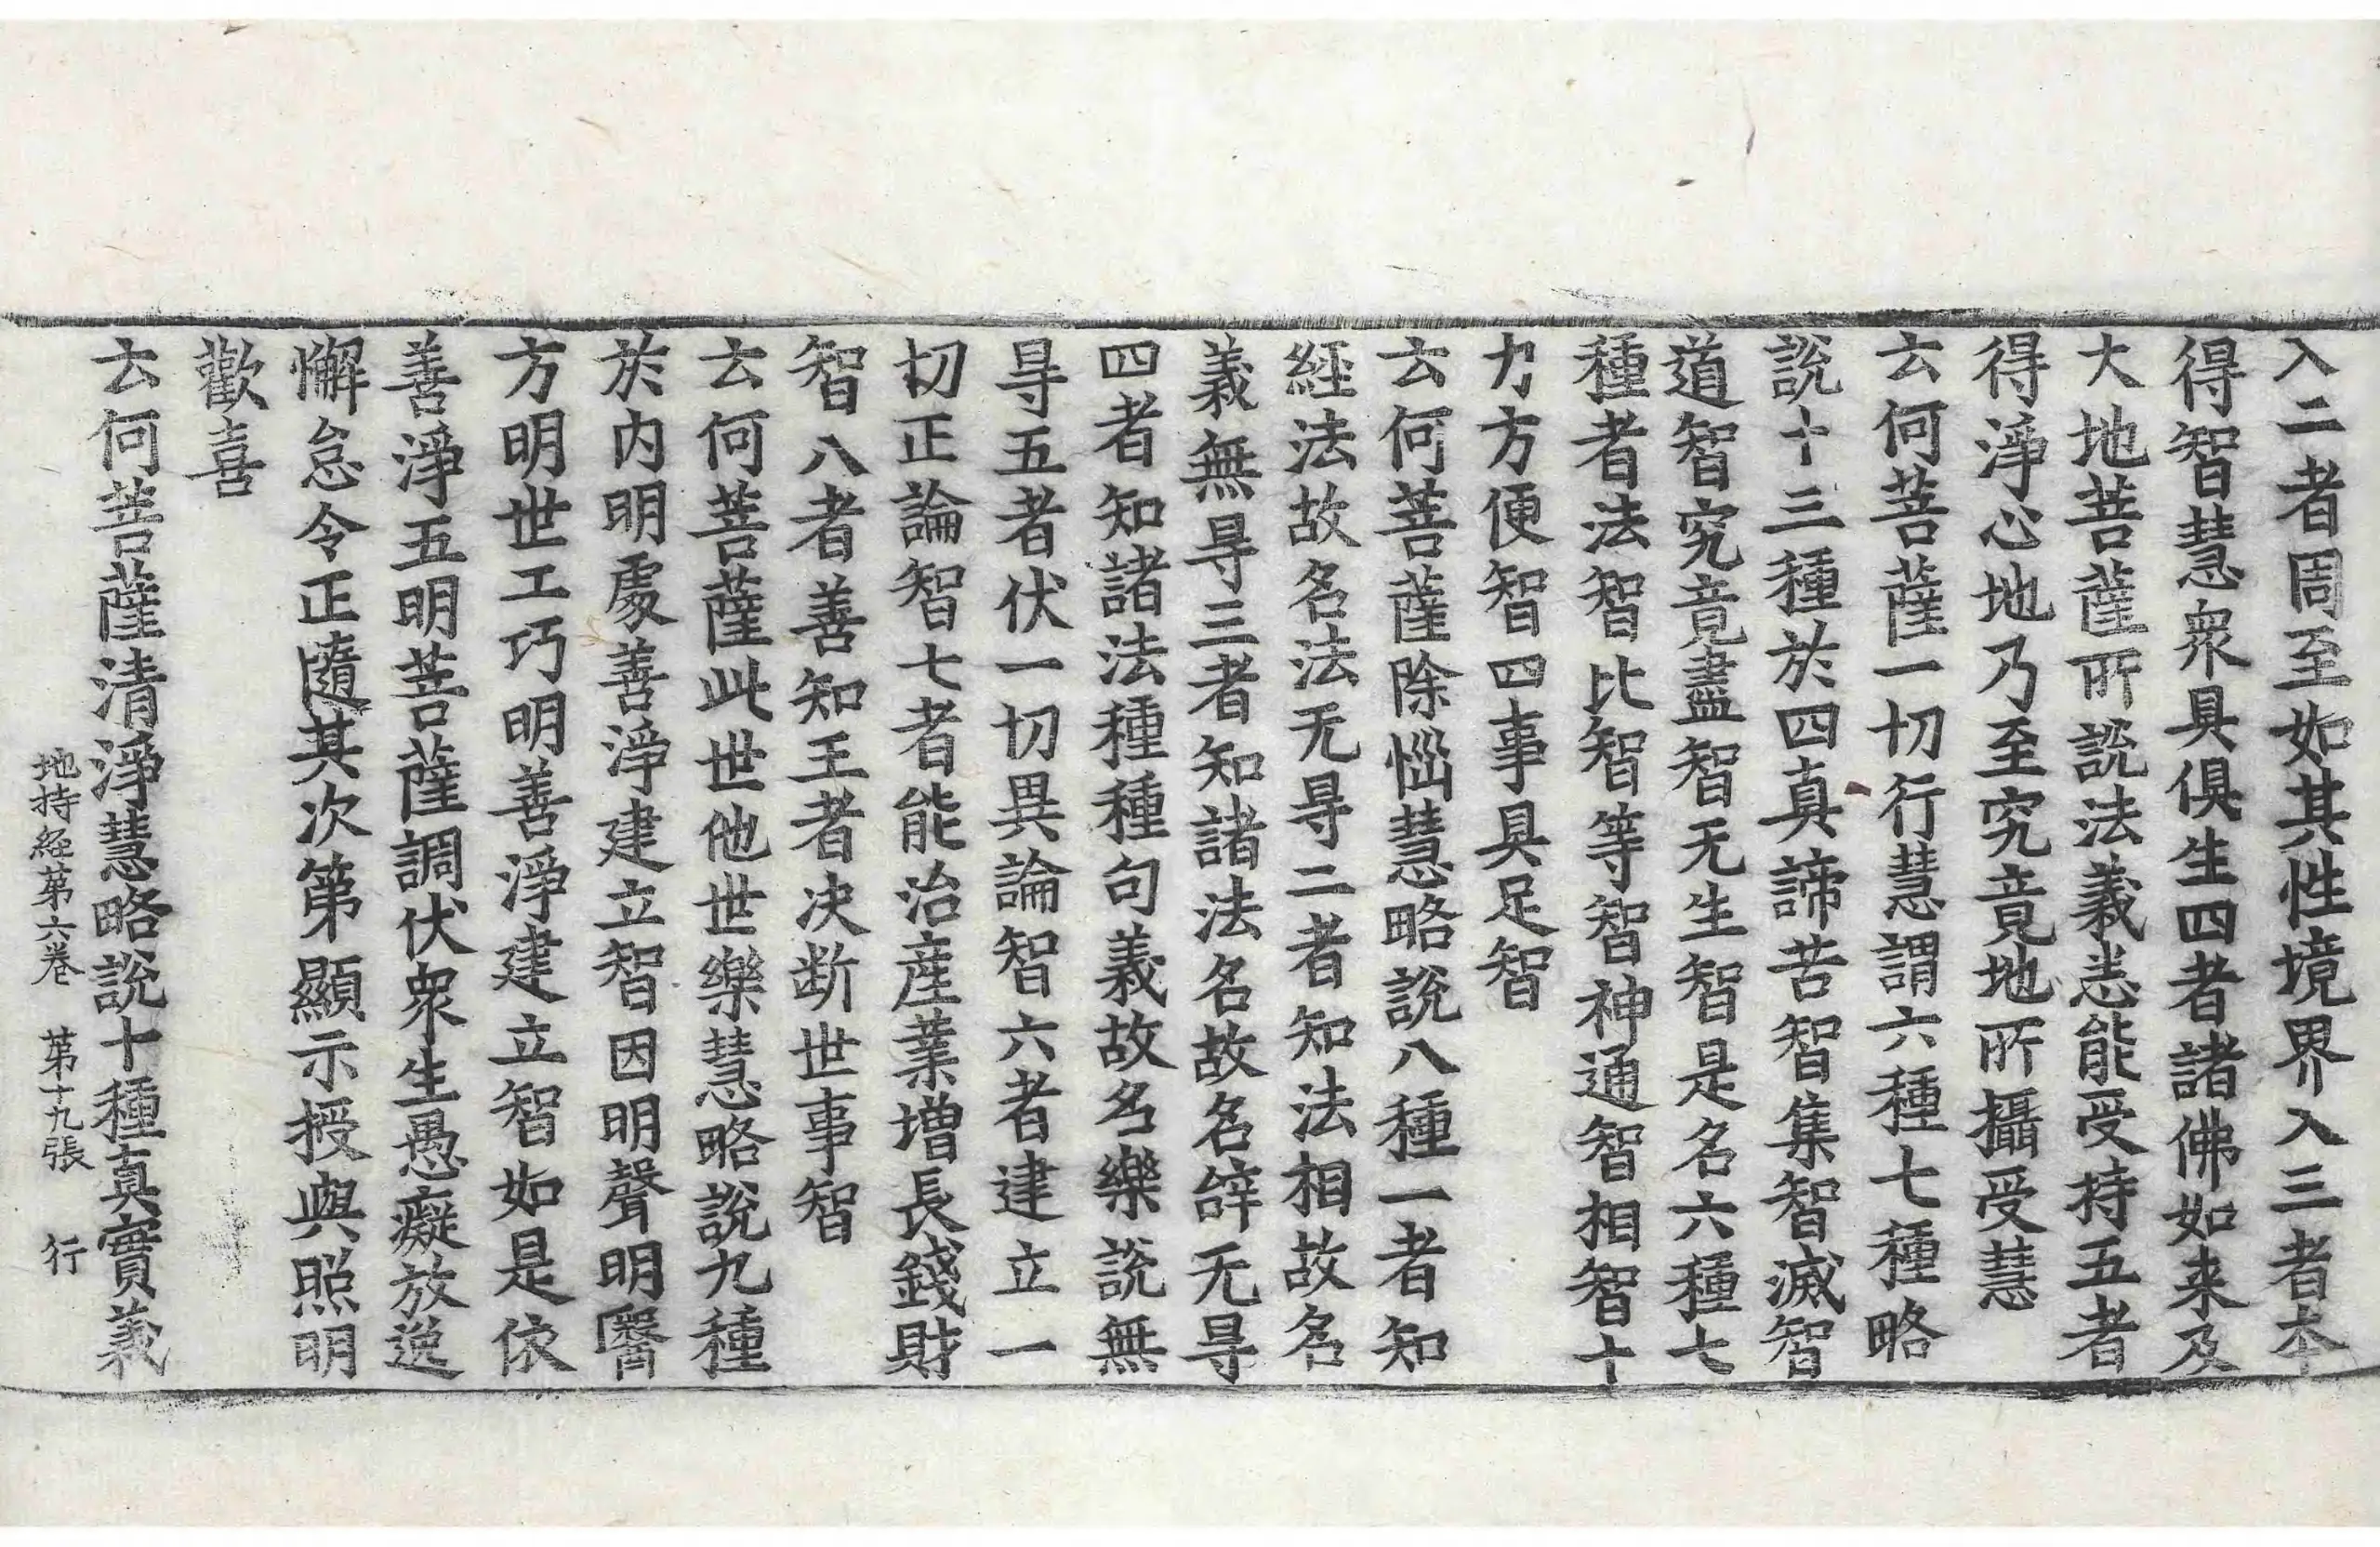 入二者周至如其性境界入三者本
得智慧衆具俱生四者諸佛如来及
大地菩薩所說法義悉能受持五者
得淨心地乃至究竟地所攝受慧
云何菩薩一切行慧謂六種七種略
說十三種於四真諦苦智集智滅智
道智究竟盡智无生智是名六種七
種者法智比智等智神通智相智十
力方便智四事具足智
云何菩薩除惱慧略說八種一者知
経法故名法无㝵二者知法相故名
義無㝵三者知諸法名故名辝无㝵
四者知諸法種種句義故名樂說無
㝵五者伏一切異論智六者建立一
切正論智七者能治産業增長錢財
智八者善知王者决断世事智
云何菩薩此世他世樂慧略說九種
於内明處善淨建立智因明聲明醫
方明世工巧明善淨建立智如是依
善淨五明菩薩調伏衆生愚癡放逸
懈怠令正隨其次第顯示授與照明
歡喜
云何菩薩清淨慧略說十種真實義
地持経第六卷 第十九張 行